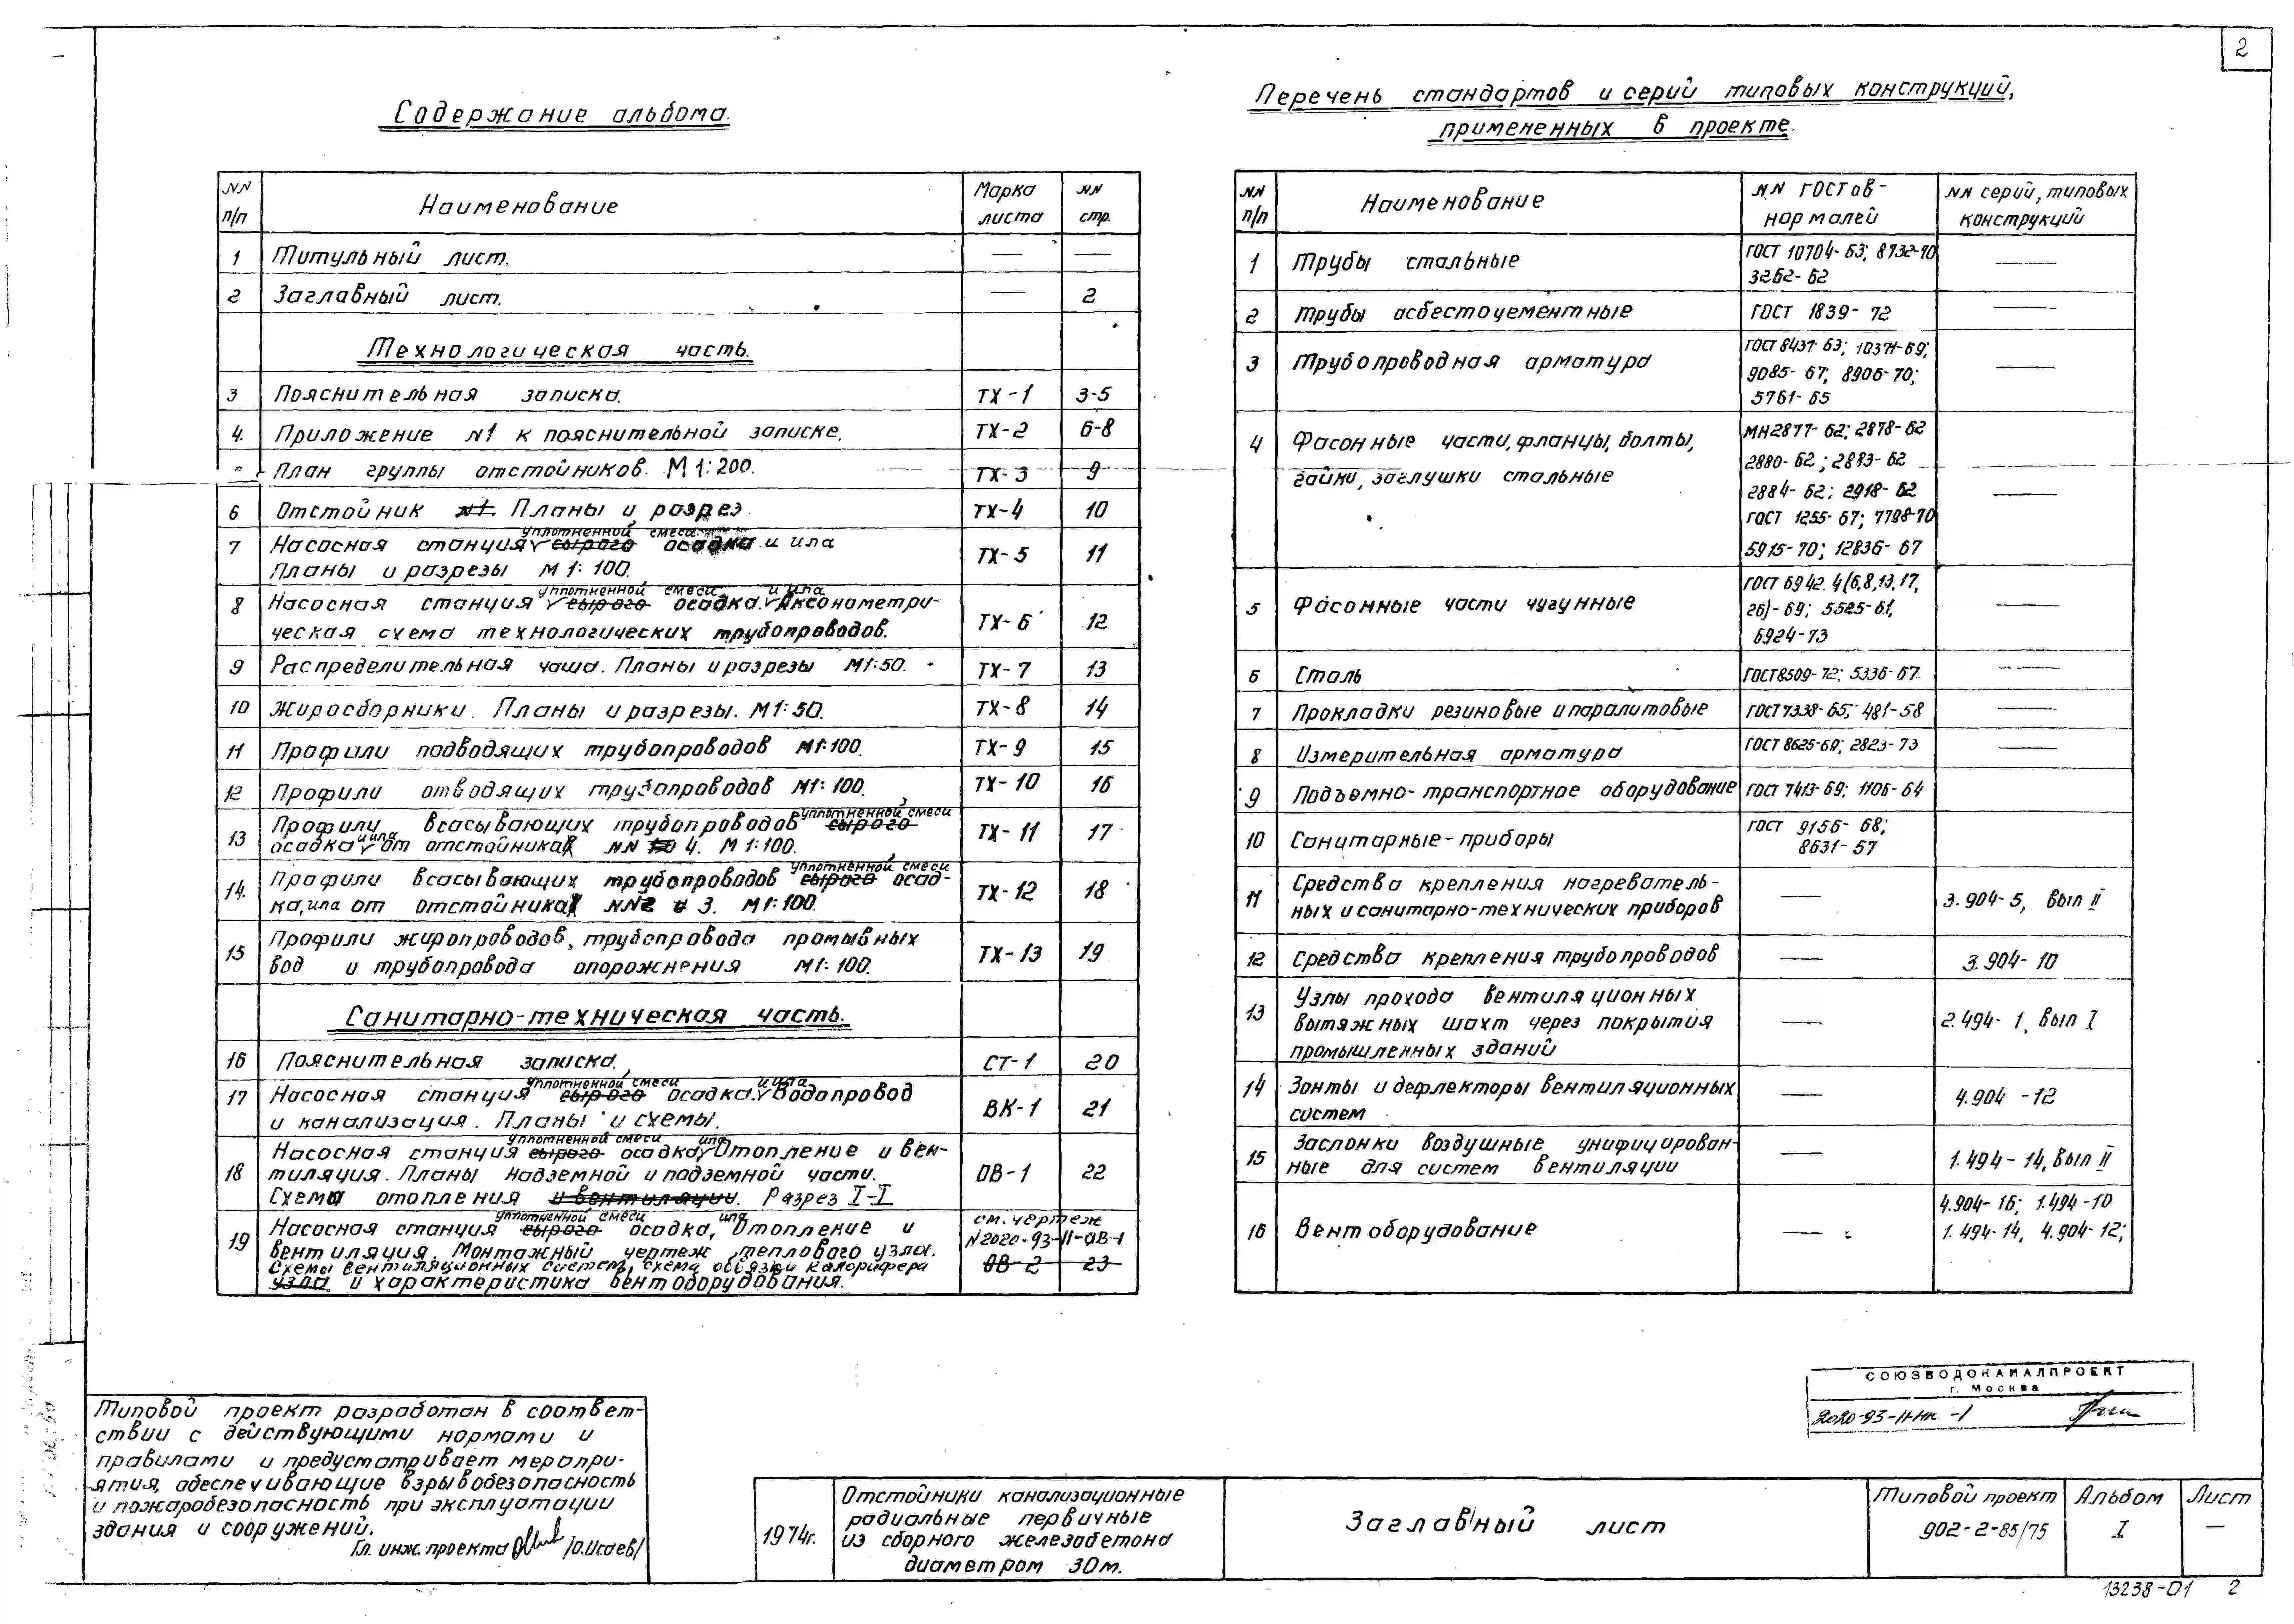 2
Содержание альбома.
NN п/п Наименование Марка листа NN стр.
1 Титульный лист. — —
2 Заглавный лист. — 2
Технологическая часть.
3 Пояснительная записка. ТХ-1 3-5
4. Приложение N1 к пояснительной записке. ТХ-2 6-8
План группы отстойников. М 1:200. ТХ-3 9
6 Отстойник N1. Планы и разрез ТХ-4 10
уплотненной смеси
7 Насосная станция сырого осадка и ила ТХ-5 11
Планы и разрезы М 1:100.
уплотненной смеси и ила
8 Насосная станция сырого осадка. Аксонометри-
ческая схема технологических трубопроводов. ТХ-6 12
9 Распределительная чаша. Планы и разрезы М1:50. ТХ-7 13
10 Жиросборники. Планы и разрезы. М1:50. ТХ-8 14
11 Профили подводящих трубопроводов М1:100. ТХ-9 15
12 Профили отводящих трубопроводов М1:100. ТХ-10 16
уплотненной смеси
13 Профили всасывающих трубопроводов сырого ТХ-11 17
и ила
осадка от отстойника NN 4. М 1:100.
уплотненной смеси
14. Профили всасывающих трубопроводов сырого осад-
ка, ила от отстойника NN2 и 3. М1:100. ТХ-12 18
15 Профили жиропроводов, трубопровода промывных
вод и трубопровода опорожнения М1:100. ТХ-13 19
Санитарно-техническая часть.
16 Пояснительная записка. СТ-1 20
уплотненной смеси и ила
17 Насосная станция сырого осадка. Водопровод
и канализация. Планы и схемы. ВК-1 21
уплотненной смеси ила
18 Насосная станция сырого осадка, Отопление и вен-
тиляция. Планы надземной и подземной части. ОВ-1 22
Схемы отопления и вентиляции. Разрез I-I
уплотненной смеси ила
19 Насосная станция сырого осадка, Отопление и см. чертеж
вентиляция. Монтажный чертеж теплового узла. N2020-93-II-ОВ-1
Схемы вентиляционных систем, схема обвязки калорифера ОВ-2 23
узла и характеристика вентоборудования.
Перечень стандартов и серий типовых конструкций,
примененных в проекте.
NN п/п Наименование NN ГОСТов-нормалей NN серий, типовых конструкций
1 Трубы стальные ГОСТ 10704-63; 8732-70 —
3262-62
2 Трубы асбестоцементные ГОСТ 1839-72 —
3 Трубопроводная арматура ГОСТ 8437-63; 10371-69; —
9085-67; 8906-70;
5761-65
4 Фасонные части, фланцы, болты, МН2877-62; 2878-62
гайки, заглушки стальные 2880-62; 2883-62
2884-62; 2918-62 —
ГОСТ 1255-67; 7798-70
5915-70; 12836-67
5 Фасонные части чугунные ГОСТ 6942.4(6,8,13,17, —
26)-69; 5525-61,
6924-73
6 Сталь ГОСТ8509-72; 5336-67 —
7 Прокладки резиновые и паралитовые ГОСТ7338-65; 481-58 —
8 Измерительная арматура ГОСТ 8625-69; 2823-73 —
9 Подъемно-транспортное оборудование ГОСТ 7413-69; 1106-64
10 Санитарные-приборы ГОСТ 9156-68;
8631-57
11 Средства крепления нагреватель-
ных и санитарно-технических приборов — 3.904-5, вып II
12 Средства крепления трубопроводов — 3.904-10
13 Узлы прохода вентиляционных
вытяжных шахт через покрытия — 2.494-1, вып I
промышленных зданий
14 Зонты и дефлекторы вентиляционных — 4.904-12
систем
15 Заслонки воздушные унифицирован-
ные для систем вентиляции — 1.494-14, вып II
16 Вентоборудование — 4.904-16; 1.494-10
1.494-14, 4.904-12;
Типовой проект разработан в соответ-
ствии с действующими нормами и
правилами и предусматривает меропри-
ятия, обеспечивающие взрывобезопасность
и пожаробезопасность при эксплуатации
здания и сооружений.
Гл. инж. проекта /О.Исаев/
СОЮЗВОДОКАНАЛПРОЕКТ
г. Москва
1974г.
Отстойники канализационные
радиальные первичные
из сборного железобетона
диаметром 30м.
Заглавный лист
Типовой проект
902-2-85/75
Альбом
I
Лист
—
13238-01 2